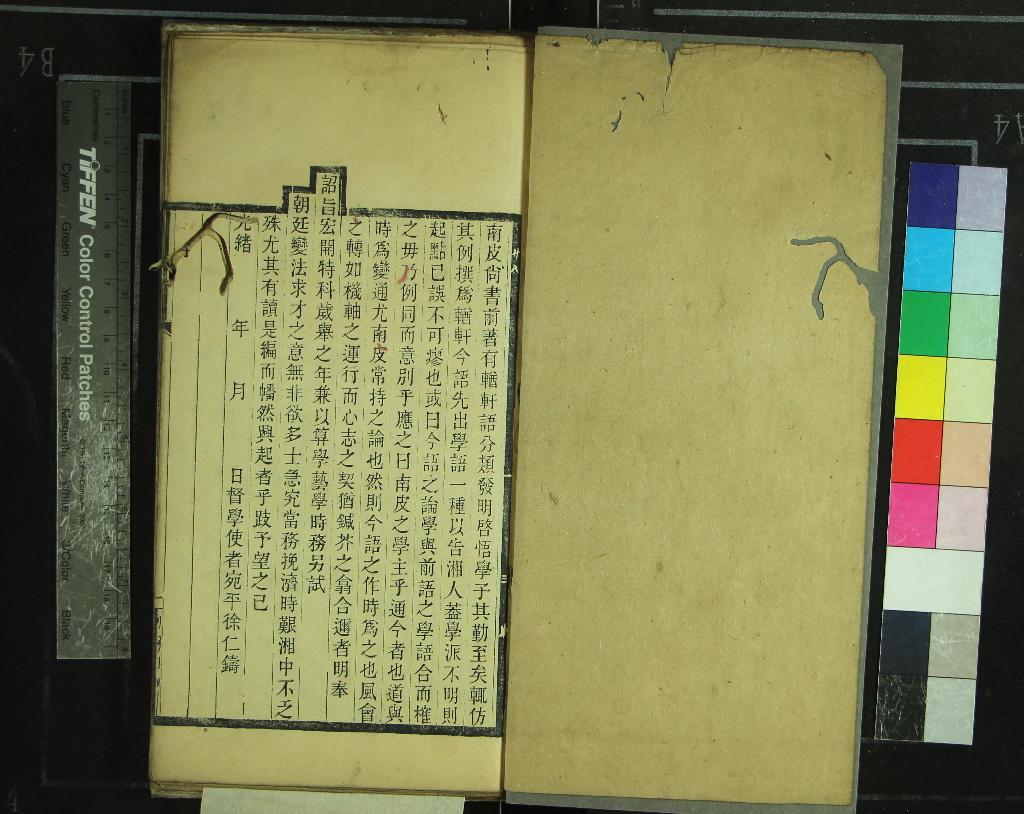 南皮尙書前著有輶軒語分類發明啓悟學子其勤至矣輒仿
其例撰爲輶軒今語先出學語一種以告湘人葢學派不明則
起點已誤不可瘳也或曰今語之論學與前語之學語合而榷
之毋乃例同而意別乎應之曰南皮之學主乎通今者也道與
時爲變通尤南皮常持之論也然則今語之作時爲之也風會
之轉如機軸之運行而心志之契猶鍼芥之翕合邇者明奉
詔旨宏開特科歲舉之年兼以算學藝學時務另試
朝廷變法求才之意無非欲多士急究當務挽濟時艱湘中不乏
殊尤其有讀是編而幡然興起者乎跂予望之已
光緒 年 月 日督學使者宛平徐仁鑄
TIFFEN Color Control Patches
Centimetres
Blue Cyan Green Yellow Red Magenta White 3/Color Black
B4
A4